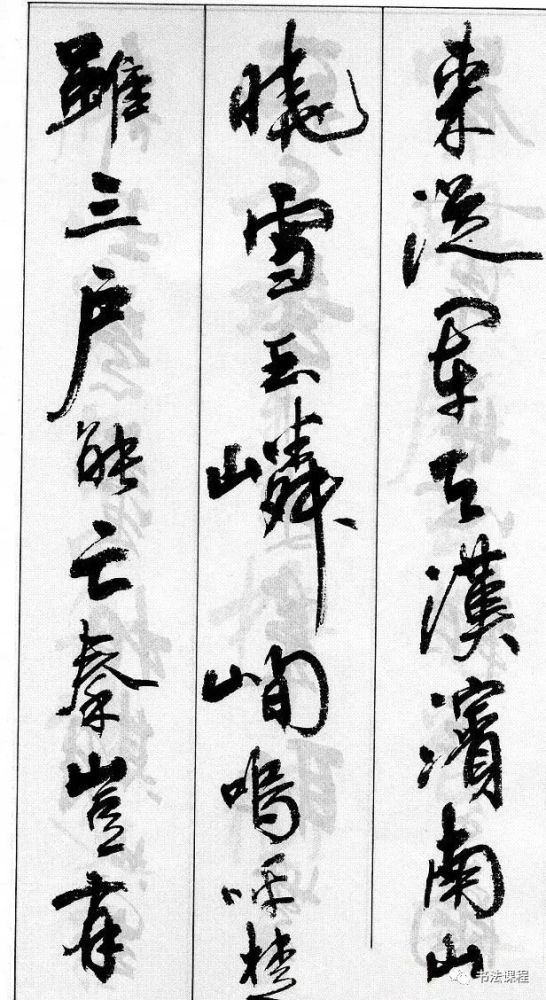 来從軍天漢濱南山
曉雪玉嶙峋嗚呼楚
雖三户能亡秦豈有
书法课程